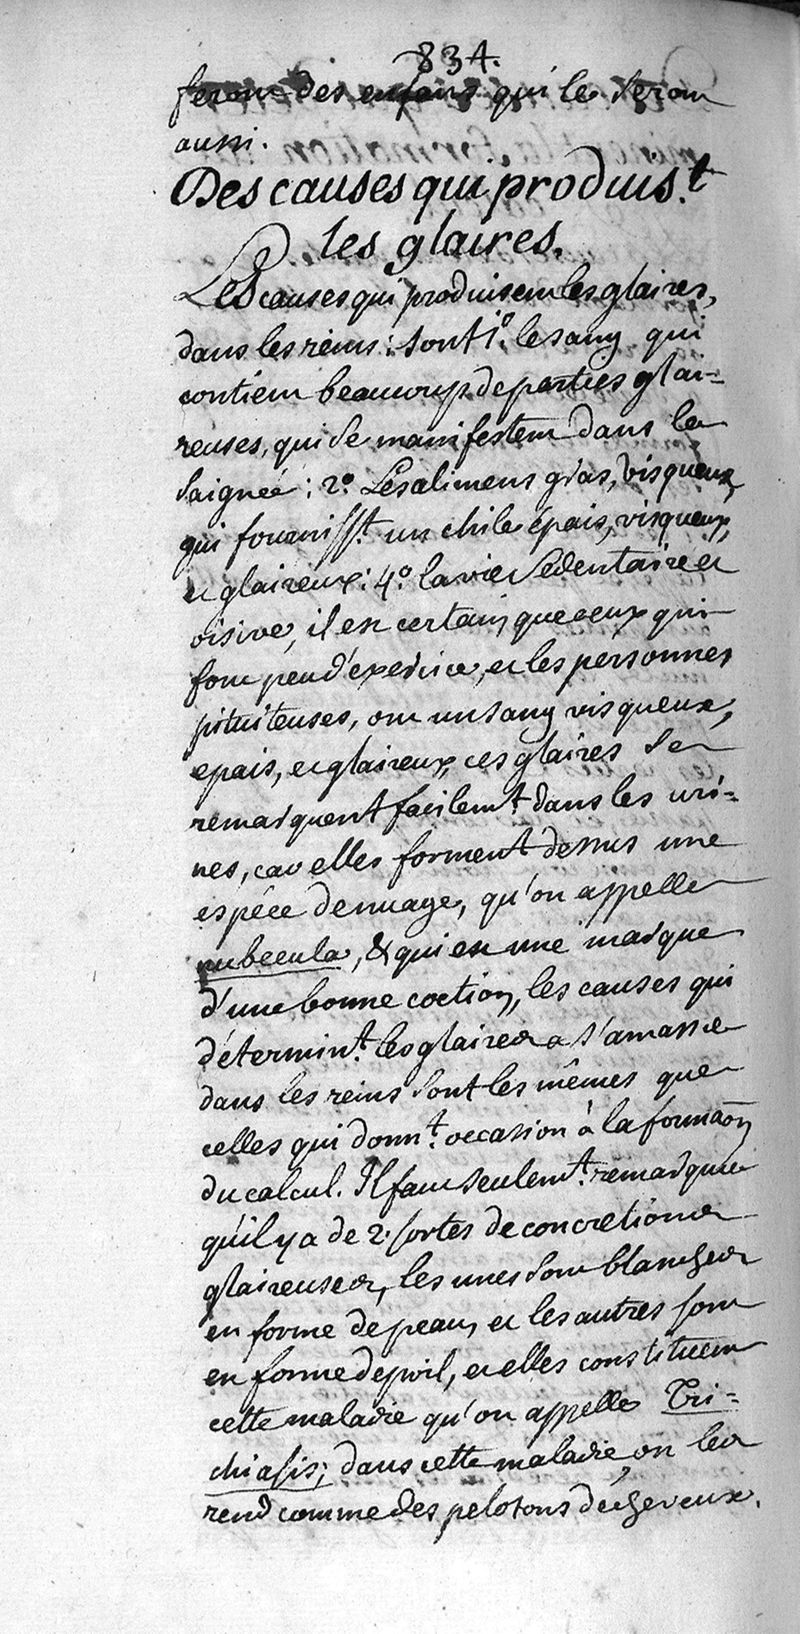 834.
feront des enfans qui le seront
aussi.
Des causes qui produis.t
les glaires.
Les causes qui produisent les glaires,
dans les reins: sont 1.º le sang qui
contient beaucoup de parties glai=
reuses, qui se manifestent dans la
saignée: 2.º Les alimens gras, visqueux,
qui fourniss.t un chile épais, visqueux,
et glaireux: 4.º la vie sedentaire et
oisive, il est certain que ceux qui
font peu d'exercice, et les personnes
pituiteuses, ont un sang visqueux,
epais, et glaireux, ces glaires se
remarquent facilem.t dans les uri=
nes, car elles forment dessus une
espéce de nuage, qu'on appelle
nubecula, & qui est une marque
d'une bonne coction, les causes qui
détermin.t les glaires a s'amasser
dans les reins sont les mêmes que
celles qui donn.t occasion à la formaõn
du calcul. Il faut seulem.t remarquer
qu'il y a de 2. sortes de concretions
glaireuses, les unes sont blanches
en forme de peau, et les autres sont
en forme de poil, et elles constituent
cette maladie qu'on appelle Tri=
chiasis; dans cette maladie, on les
rend comme des pelotons de cheveux.